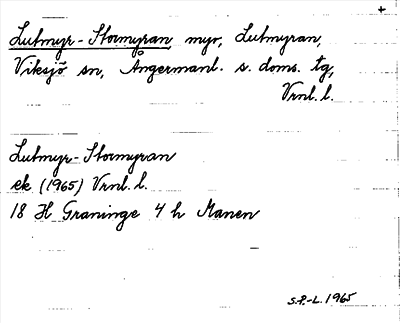 +
Lutmyr-Stormyran, myr, Lutmyran,
Viksjö sn, Ångermanl. s. doms. tg,
Vrnl. l.
Lutmyr-Stormyran
ek (1965) Vrnl. l.
18 H Graninge 4 h Manen
S.P.-L. 1965